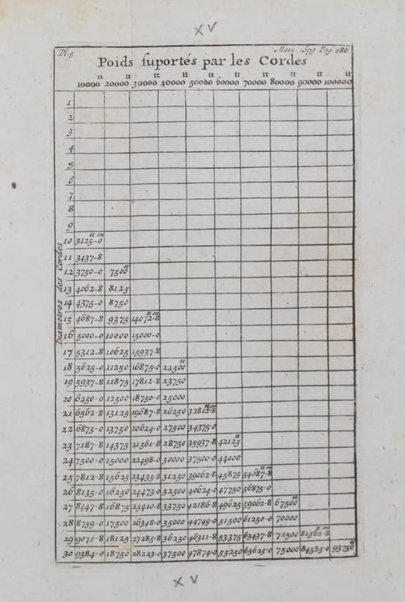 XV
Poids suportés par les Cordes
tt tt tt tt tt tt tt tt tt tt
10000 20000 30000 40000 50000 60000 70000 80000 90000 100000
Diametres des Cordes
1
2
3
4
5
6
7
8
9
10 3125-0
11 3437-8
12 3750-0 7500
13 4062-8 8125
14 4375-0 8750
15 4687-8 9375 14072-8
16 5000-0 10000 15000-0
17 5312-8 10625 15937-8
18 5625-0 11250 16875-0 22500
19 5937-8 11875 17812-8 23750
20 6250-0 12500 18750-0 25000
21 6562-8 13125 19687-8 26250 32812-8
22 6875-0 13750 20624-0 27500 34375-0
23 7187-8 14375 21561-8 28750 35937-8 42125
24 7500-0 15000 22498-0 30000 37500-0 44000
25 7812-8 15625 23435-8 31250 39062-8 45875 54687-8
26 8135-0 16250 24473-0 32500 40624-0 47750 56875-0
27 8447-8 16875 25410-8 33750 42186-8 49625 59062-8 67500
28 8759-0 17500 26348-0 35000 44749-0 51500 61250-0 70000
29 9071-8 18125 27285-8 36250 46311-8 53375 63437-8 72500 81562-8
30 9384-0 18750 28223-0 37500 47874-0 55250 65625-0 75000 84385-0 93750
XV